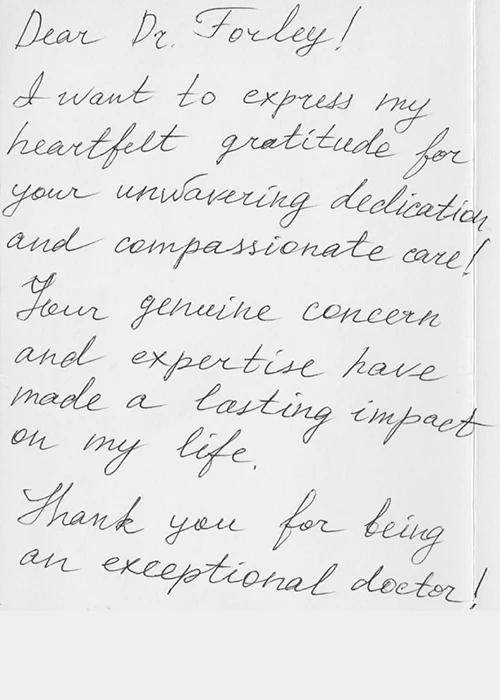 Dear Dr. Forley!
I want to express my
heartfelt gratitude for
your unwavering dedication
and compassionate care!
Your genuine concern
and expertise have
made a lasting impact
on my life.
Thank you for being
an exceptional doctor!